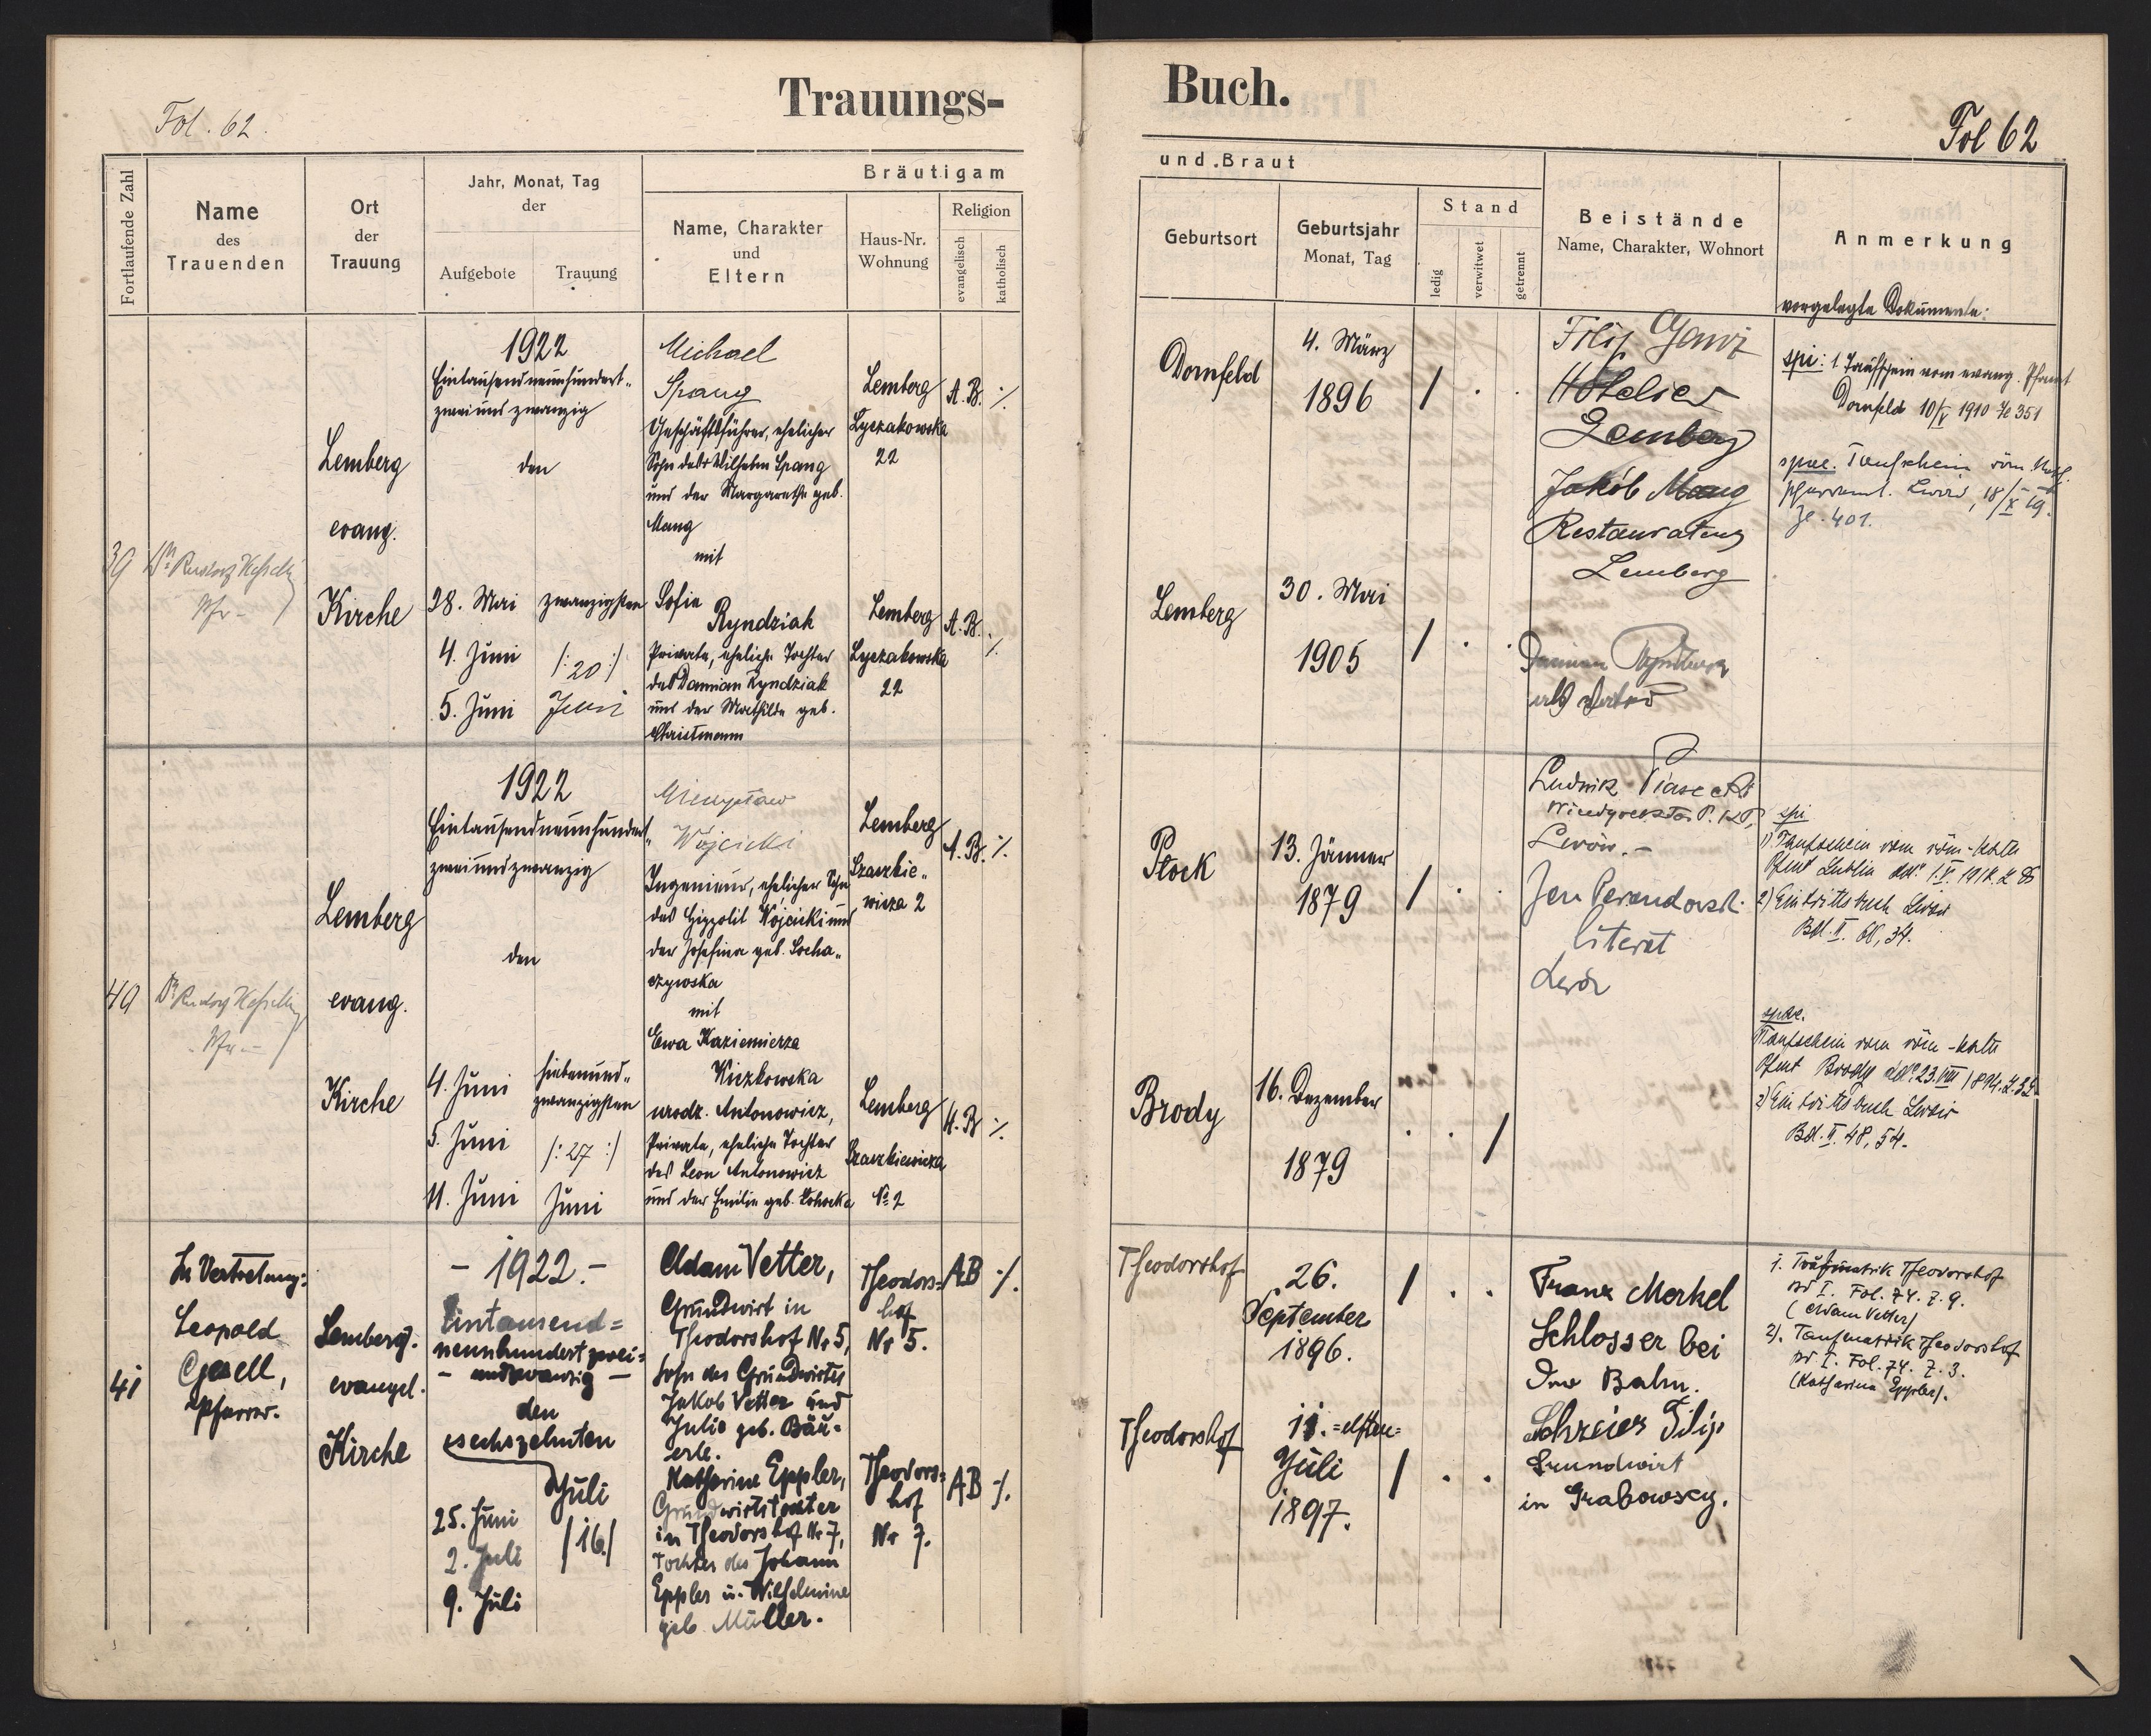 Trauungs-
Fol. 62.
Fortlaufende Zahl
Name
des
Trauenden
Ort
der
Trauung
Jahr, Monat, Tag
der
Aufgebote
Trauung
Bräutigam
Name, Charakter
und
Eltern
Haus-Nr.
Wohnung
Religion
evangelisch
katholisch
39
Lemberg
evang.
Kirche
1922
Eintausendneunhundert-
zweiundzwanzig
den
28. Mai
4. Juni
5. Juni
zwanzigsten
/:20:/
Juni
Michael
Spang
Geschäftsführer, ehelicher
Sohn des Wilhelm Spang
und der Margarethe geb.
Mang
mit
Sofie
Ryndziak
Private, eheliche Tochter
des Damian Ryndziak
und der Mathilde geb.
Christmann
Lemberg
Lyczakowska
22
A.B. ·/.
Lemberg
Lyczakowska
22
A.B. ·/.
49
Lemberg
evang.
Kirche
1922
Eintausendneunhundert-
zweiundzwanzig
den
4. Juni
5. Juni
11. Juni
siebenund-
zwanzigsten
/:27:/
Juni
Mieczysław
Wójcicki
Ingenieur, ehelicher Sohn
des Hippolit Wójcicki und
der Josefina geb. Socha-
czywska
mit
Ewa Kazimierza
Kiczkowska
urodz. Antonowicz,
Private, eheliche Tochter
des Leon Antonowicz
und der Emilie geb.
Lemberg
Szaszkie-
wicza 2
A.B. ·/.
Lemberg
Szaszkiewicza
No 2
·/.
41
In Vertretung:
Leopold
Gesell,
Pfarrer.
Lemberg.
evangel.
Kirche
- 1922. -
Eintausend=
neunhundertzwei=
- undzwanzig -
den
sechszehnten
Juli
/16./
25. Juni
2. Juli
9. Juli
Adam Vetter,
Grundwirt in
Theodorshof Nr 5,
Sohn des Grundwirtes
Jakob Vetter und
Julie geb. Bäu-
erle.
Katharina Eppler,
Grundwirtstochter
in Theodorshof Nr 7,
Tochter des Johann
Eppler u. Wilhelmine
geb. Müller.
Theodors=
hof
Nr 5.
AB ·/.
Theodors=
hof
Nr 7.
AB ·/.
Buch.
Fol 62
und Braut
Geburtsort
Geburtsjahr
Monat, Tag
Stand
ledig
verwitwet
getrennt
Beistände
Name, Charakter, Wohnort
Anmerkung
vorgelegte Dokumente:
Dornfeld
4. März
1896
/
Hôtelier
Lemberg
Jakób Mang
Restaurateur
Lemberg
spi: 1 Taufschein vom evang. Pfarramt
Dornfeld 10/V 1910 Ze 351
Lemberg
30. Mai
1905
/
spae. Taufschein röm. kath.
Pfarramt. Lwów, 18/X 19.
Ze. 401.
Płock
13. Jänner
1879
/
Ludwik Piasecki
Lwów.-
Jan Parandowski
Literat
Lwów
spi
1) Taufschein vom röm-kath
Pfamt Lublin
2) Eintrittsbuch Lwów
Bd. II.
Brody
16. Dezember
1879
/
spae.
Taufschein vom röm-kath
Pfmt Brody
2) Eintrittsbuch Lwów
Bd. II. 48, 54.
Theodorshof
26.
September
1896.
/
Franz Merkel
Schlosser bei
der Bahn.
1. Taufmatrik Theodorshof
Bd I. Fol. 74. Z. 9.
(Adam Vetter)
2). Taufmatrik Theodorshof
Bd I. Fol. 74. Z. 3.
(Katharina Eppler).
Theodorshof
11. =elften=
Juli
1897.
/
Schreier Filip
Grundwirt
in Grabowscy.